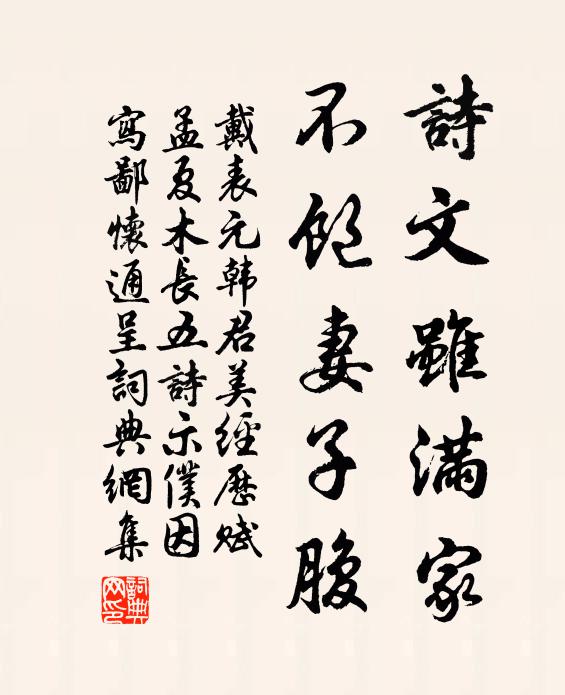 詩文雖滿家
不飽妻子腹
戴表元韩君美經歷赋
孟夏木長五詩示僕因
寫鄙懷通呈詞典網集
詞典
网印